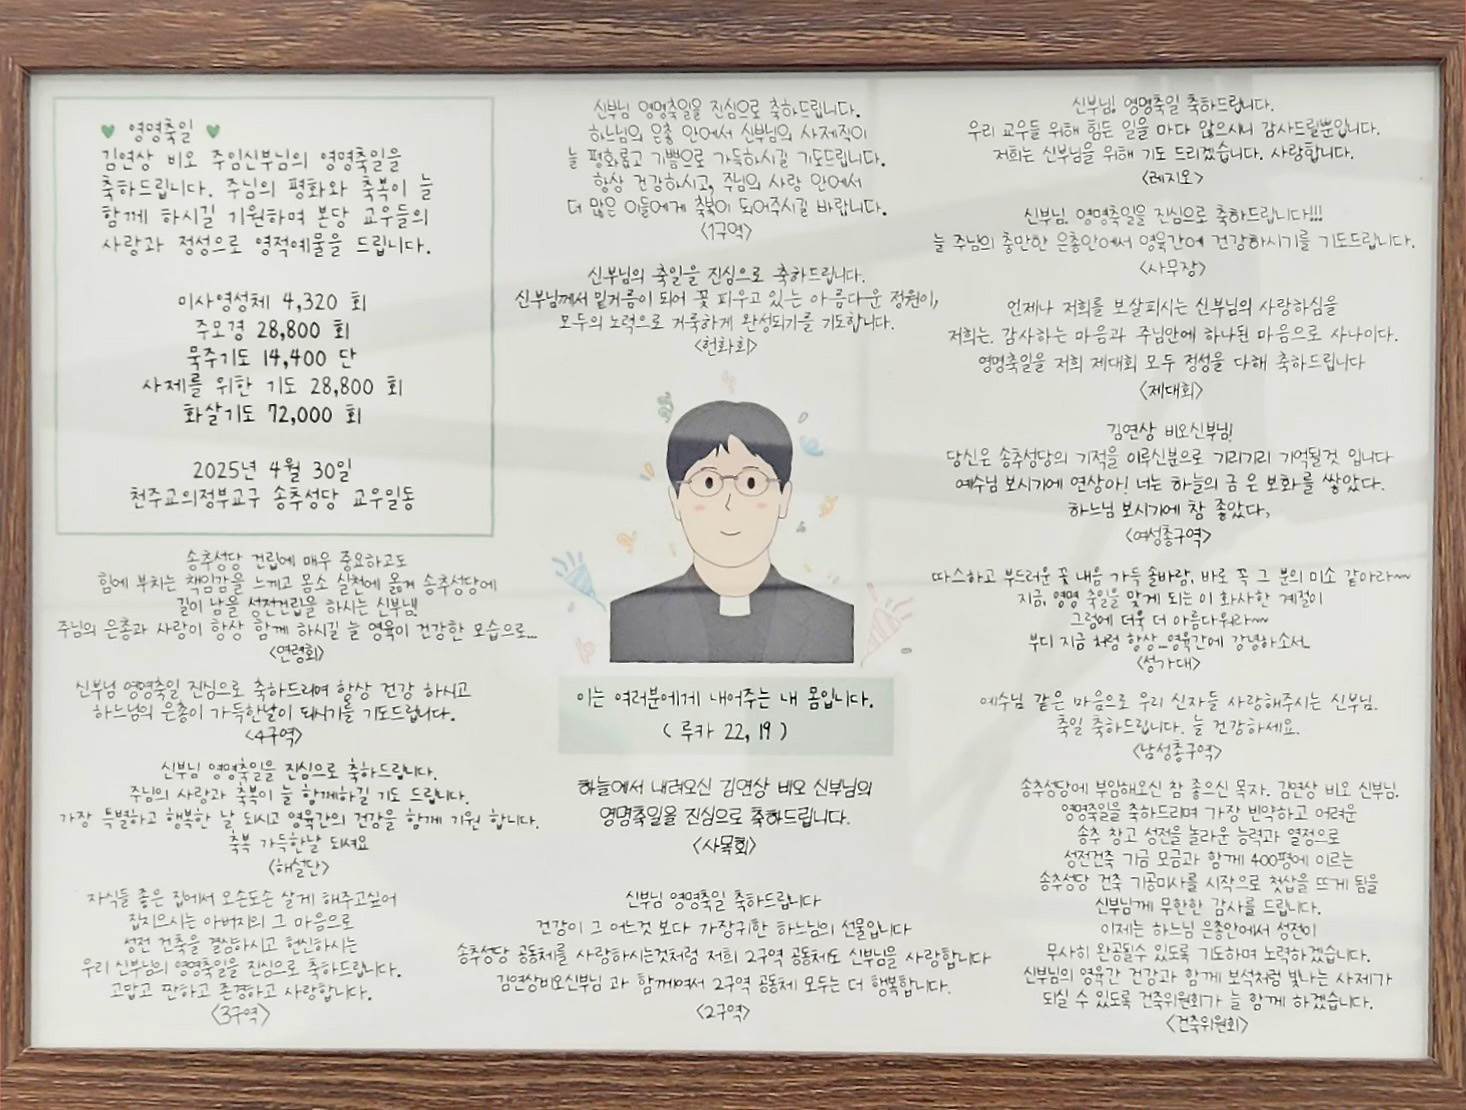 ♥ 영명축일 ♥
김연상 비오 주임신부님의 영명축일을
축하드립니다. 주님의 평화와 축복이 늘
함께 하시길 기원하며 본당 교우들의
사랑과 정성으로 영적예물을 드립니다.
미사영성체 4,320 회
주모경 28,800 회
묵주기도 14,400 단
사제를 위한 기도 28,800 회
화살기도 72,000 회
2025년 4월 30일
천주교의정부교구 송추성당 교우일동
송추성당 건립에 매우 중요하고도
힘에 부치는 책임감을 느끼고 몸소 실천에 옮겨 송추성당에
길이 남을 성전건립을 하시는 신부님!
주님의 은총과 사랑이 항상 함께 하시길 늘 영육이 건강한 모습으로...
<연령회>
신부님 영명축일 진심으로 축하드리며 항상 건강 하시고
하느님의 은총이 가득한날이 되시기를 기도드립니다.
<4구역>
신부님 영명축일을 진심으로 축하드립니다.
주님의 사랑과 축복이 늘 함께하길 기도 드립니다.
가장 특별하고 행복한 날 되시고 영육간의 건강을 함께 기원 합니다.
축복 가득한날 되셔요
<해설단>
자식들 좋은 집에서 오손도손 살게 해주고싶어
집지으시는 아버지의 그 마음으로
성전 건축을 결심하시고 헌신하시는
우리 신부님의 영명축일을 진심으로 축하드립니다.
고맙고 짠하고 존경하고 사랑합니다.
<3구역>
신부님 영명축일을 진심으로 축하드립니다.
하느님의 은총 안에서 신부님의 사제직이
늘 평화롭고 기쁨으로 가득하시길 기도드립니다.
항상 건강하시고, 주님의 사랑 안에서
더 많은 이들에게 축복이 되어주시길 바랍니다.
<1구역>
신부님의 축일을 진심으로 축하드립니다.
신부님께서 밑거름이 되어 꽃 피우고 있는 아름다운 정원이,
모두의 노력으로 거룩하게 완성되기를 기도합니다.
<헌화회>
이는 여러분에게 내어주는 내 몸입니다.
( 루카 22, 19 )
하늘에서 내려오신 김연상 비오 신부님의
영명축일을 진심으로 축하드립니다.
<사목회>
신부님 영명축일 축하드립니다
건강이 그 어느것 보다 가장귀한 하느님의 선물입니다
송추성당 공동체를 사랑하시는것처럼 저희 2구역 공동체도 신부님을 사랑합니다
김연상비오신부님 과 함께여서 2구역 공동체 모두는 더 행복합니다.
<2구역>
신부님! 영명축일 축하드립니다.
우리 교우들 위해 힘든 일을 마다 않으시니 감사드릴뿐입니다.
저희는 신부님을 위해 기도 드리겠습니다. 사랑합니다.
<레지오>
신부님. 영명축일을 진심으로 축하드립니다!!!
늘 주님의 충만한 은총안에서 영육간에 건강하시기를 기도드립니다.
<사무장>
언제나 저희를 보살피시는 신부님의 사랑하심을
저희는. 감사하는 마음과 주님안에 하나된 마음으로 사나이다.
영명축일을 저희 제대회 모두 정성을 다해 축하드립니다
<제대회>
김연상 비오신부님!
당신은 송추성당의 기적을 이루신분으로 기리기리 기억될것 입니다
예수님 보시기에 연상아! 너는 하늘의 금 은 보화를 쌓았다.
하느님 보시기에 참 좋았다,
<여성총구역>
따스하고 부드러운 꽃 내음 가득 솔바람, 바로 꼭 그 분의 미소 같아라~~
지금, 영명 축일을 맞게 되는 이 화사한 계절이
그럼에 더욱 더 아름다워라~~
부디 지금 처럼 항상...영육간에 강녕하소서...
<성가대>
예수님 같은 마음으로 우리 신자들 사랑해주시는 신부님.
축일 축하드립니다. 늘 건강하세요.
<남성총구역>
송추성당에 부임해오신 참 좋으신 목자. 김연상 비오 신부님.
영명축일을 축하드리며 가장 빈약하고 어려운
송추 창고 성전을 놀라운 능력과 열정으로
성전건축 기금 모금과 함께 400평에 이르는
송추성당 건축 기공미사를 시작으로 첫삽을 뜨게 됨을
신부님께 무한한 감사를 드립니다.
이제는 하느님 은총안에서 성전이
무사히 완공될수 있도록 기도하며 노력하겠습니다.
신부님의 영육간 건강과 함께 보석처럼 빛나는 사제가
되실 수 있도록 건축위원회가 늘 함께 하겠습니다.
<건축위원회>